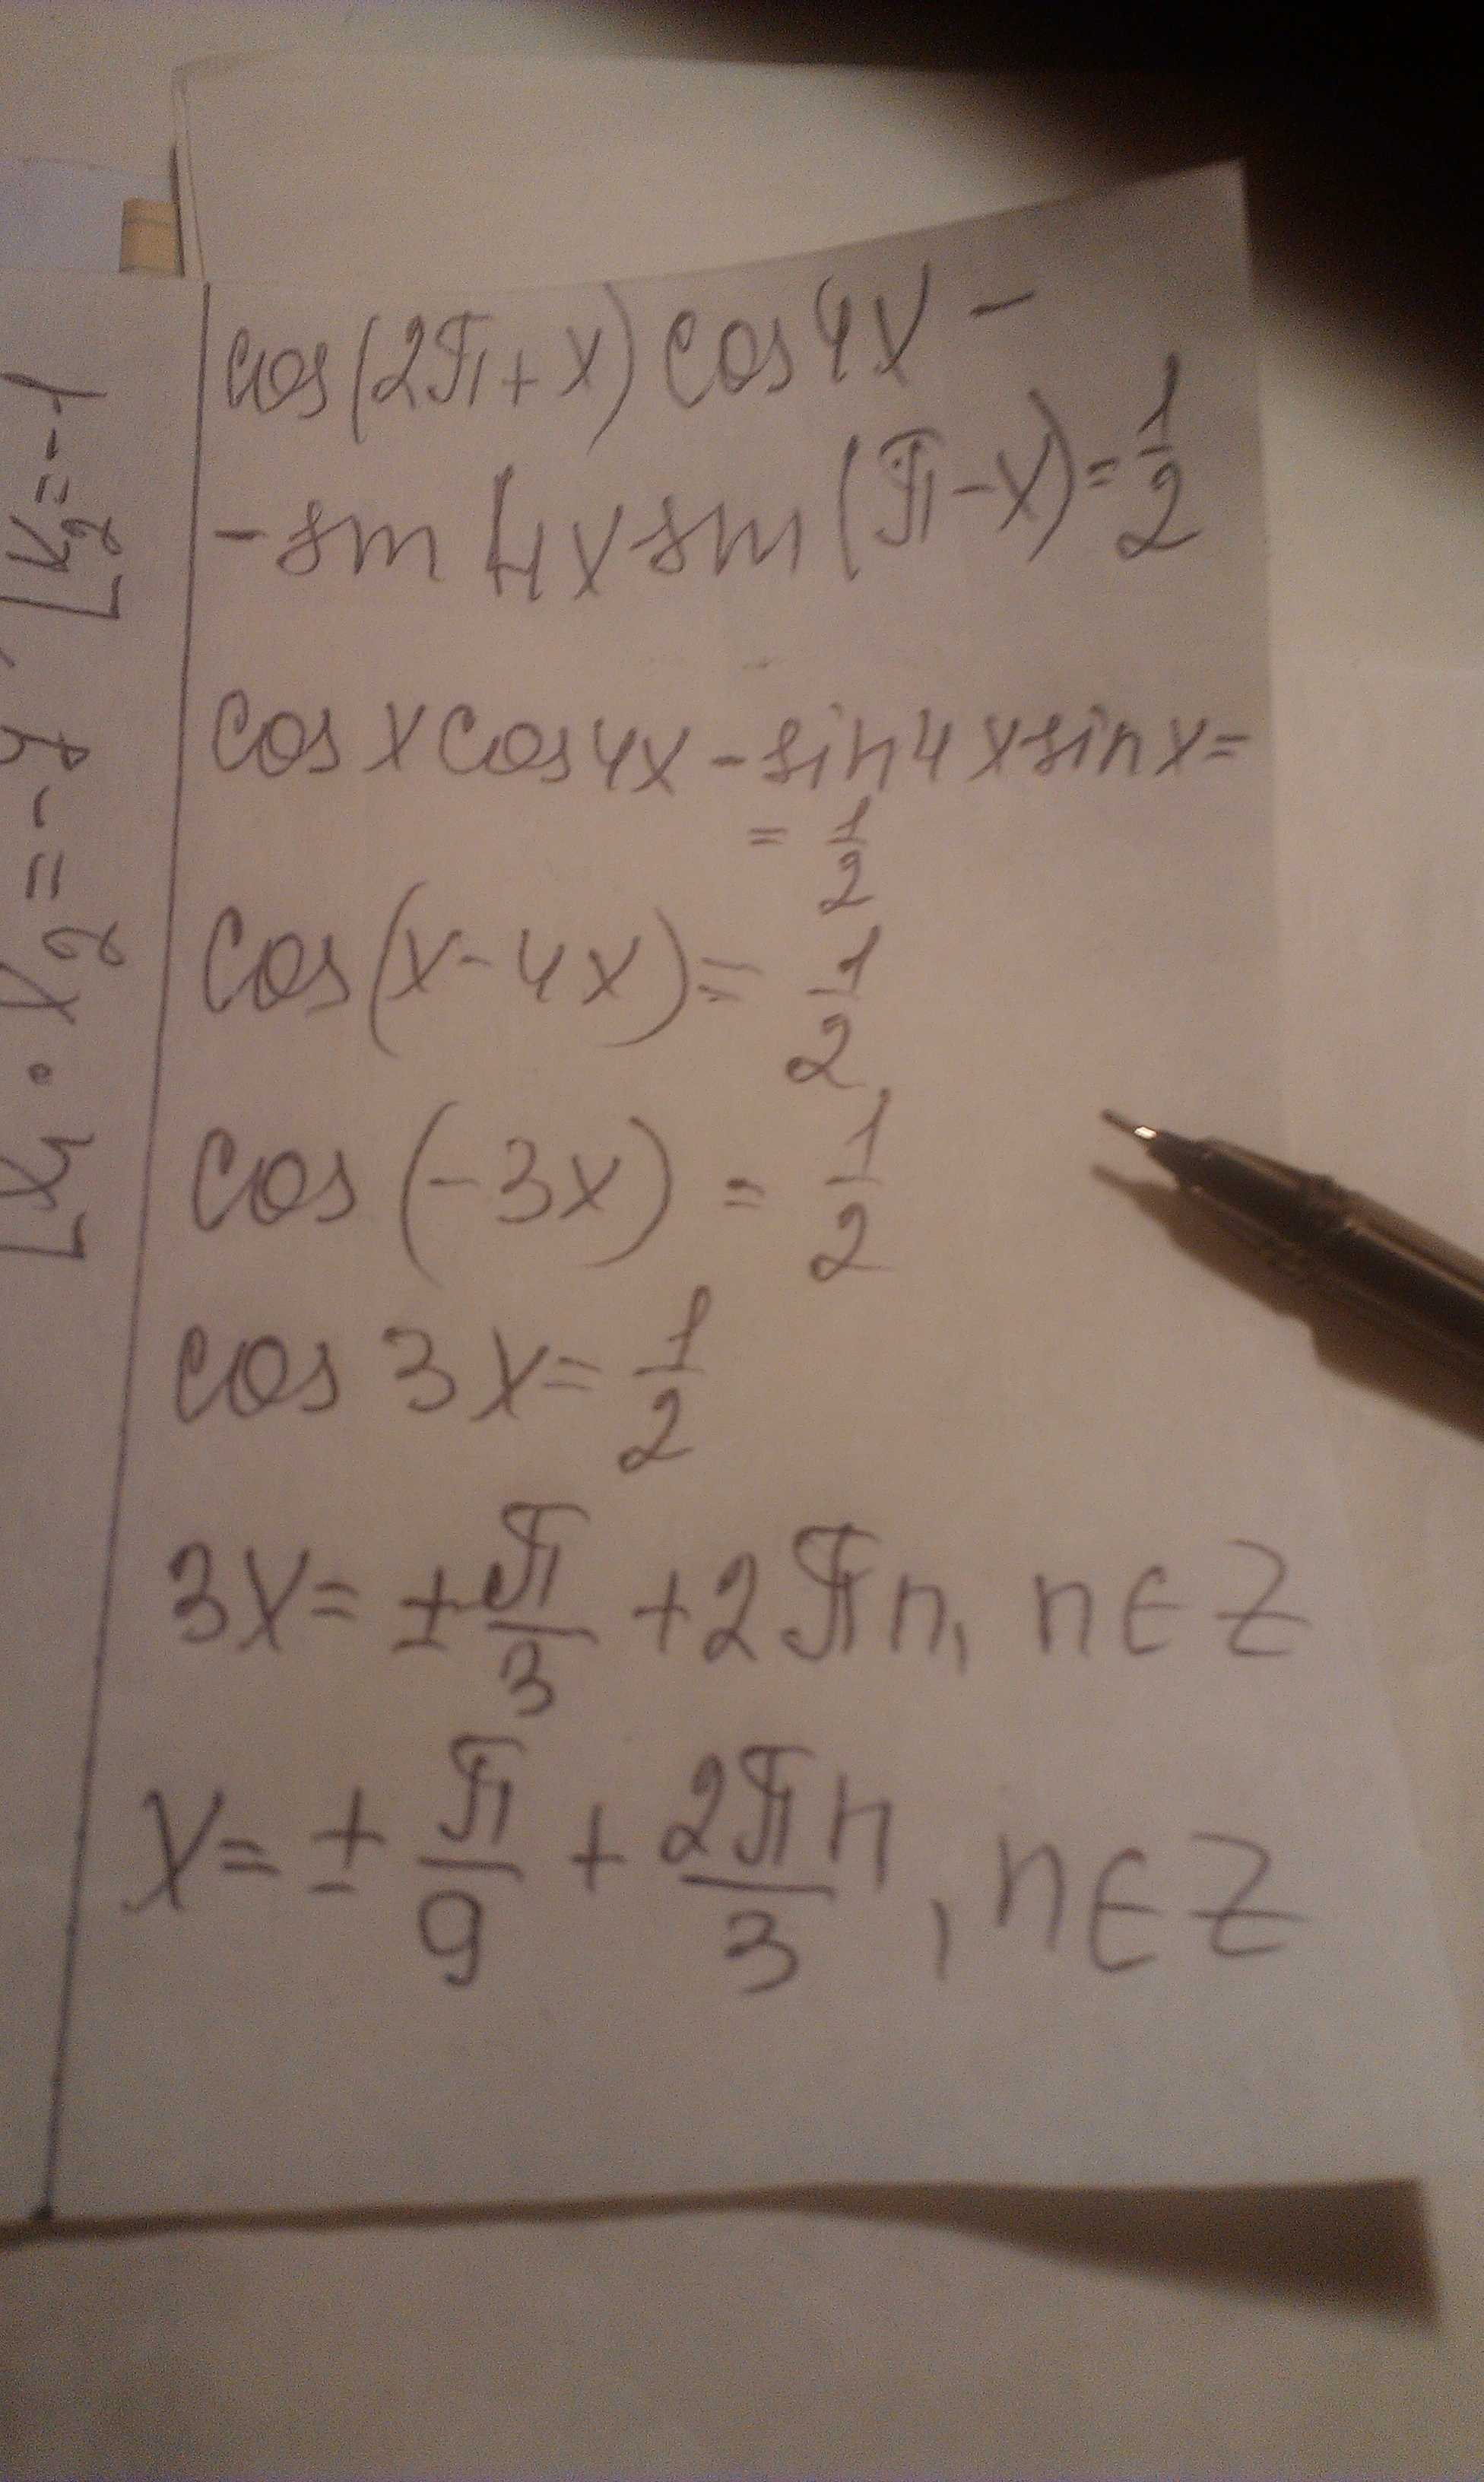 cos(2π+x)cos4x-
-sin4xsin(π-x)=1/2
cosxcos4x-sin4xsinx=
=1/2
cos(x-4x)=1/2
cos(-3x)=1/2
cos3x=1/2
3x=±π/3+2πn, n∈Z
x=±π/9+2πn/3, n∈Z
x₂=-1